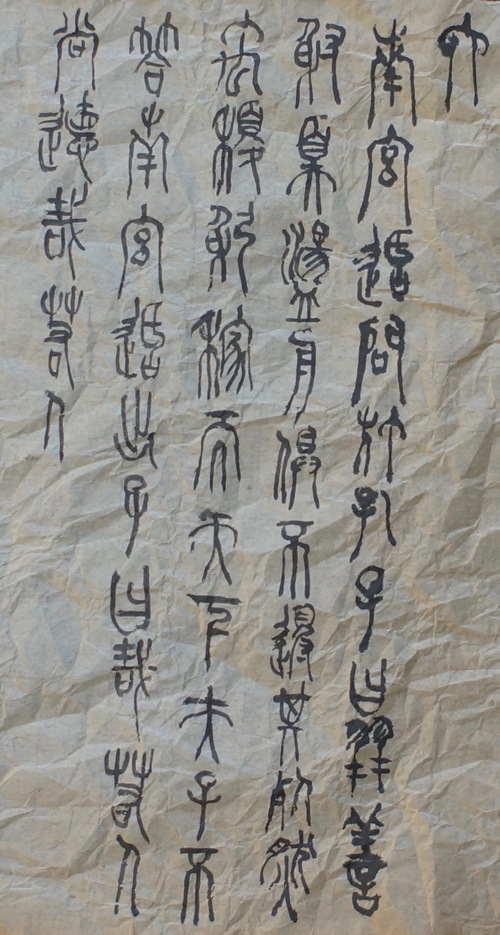 南宮适問於孔子曰羿善
射奡盪舟俱不得其死然
禹稷躬稼而天下夫子不
答南宮适出子曰哉若人
尚德哉若人